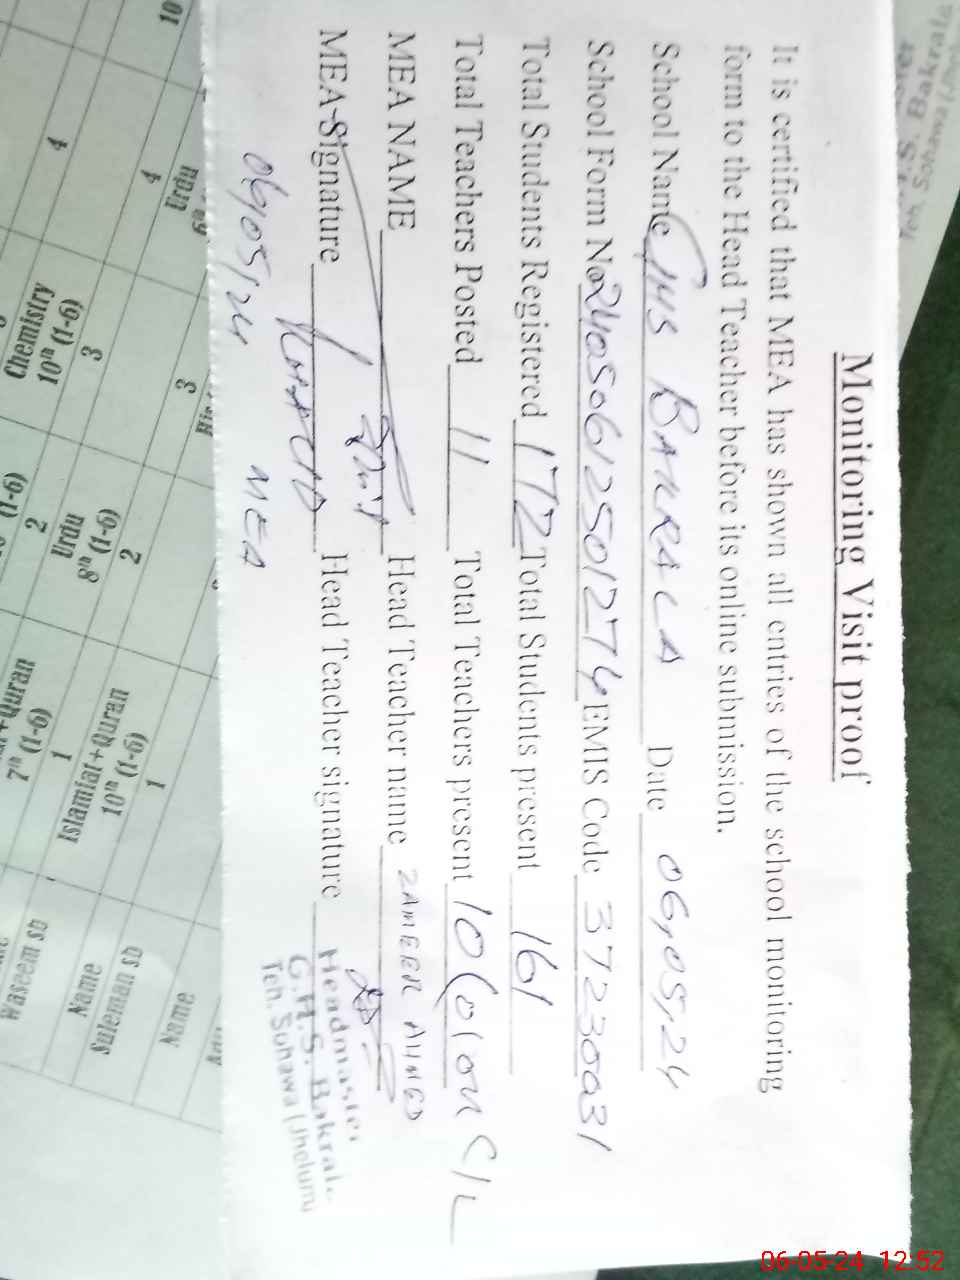 Monitoring Visit proof
It is certified that MEA has shown all entries of the school monitoring
form to the Head Teacher before its online submission.
School Name GHS BAKRALA Date 06,05,24
School Form No 24050612501274 EMIS Code 37230031
Total Students Registered 172 Total Students present 161
Total Teachers Posted 11 Total Teachers present 10 (01 on C/L
MEA NAME Head Teacher name ZAMEER AHMED
MEA-Signature Head Teacher signature
Headmaster
G.H.S. Bakrala
Teh. Sohawa (Jhelum)
06/05/24 MEA
S. Bakrala
Teh. Sohawa
10
4 3
Urdu
4 3 2 1
Chemistry Urdu Islamiat+Quran Name
10th (1-6) 8th (1-6) 10th (1-6) Suleman sb
2 1 Name
(1-6) 7th (1-6) Waseem sb
+Quran
Name
06-05-24 12:52